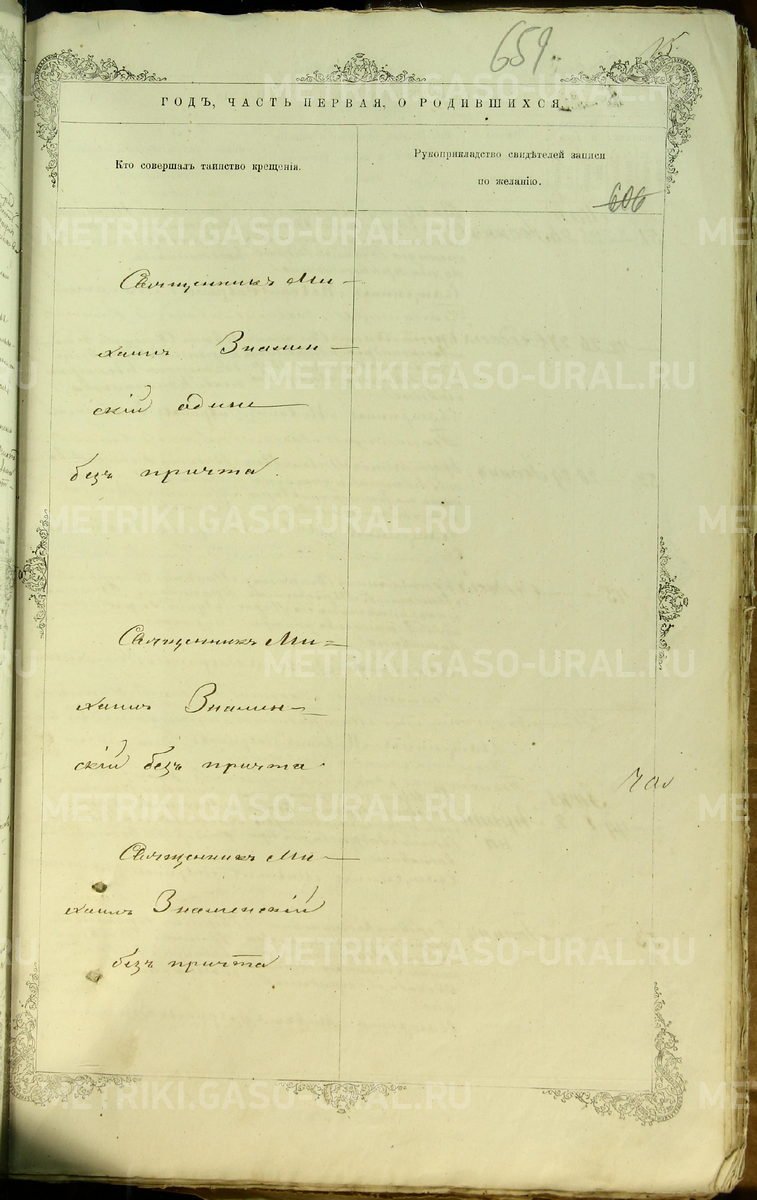 659.
ГОДЪ, ЧАСТЬ ПЕРВАЯ, О РОДИВШИХСЯ.
Кто совершалъ таинство крещенія.
Рукоприкладство свидѣтелей записи
по желанію.
606
Священникъ Ми-
хаилъ Знамен-
скій одинъ
безъ причта.
Священникъ Ми-
хаилъ Знамен-
скій безъ причта.
Священникъ Ми-
хаилъ Знаменскій
безъ причта.
METRIKI.GASO-URAL.RU